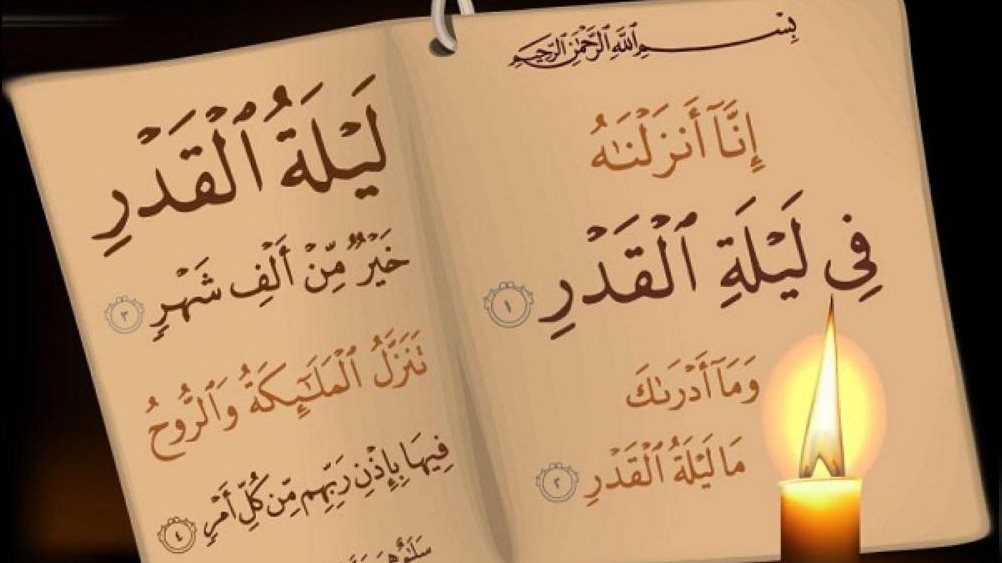 بِسْمِ ٱللَّهِ ٱلرَّحْمَٰنِ ٱلرَّحِيمِ
إِنَّآ أَنزَلْنَٰهُ
فِى لَيْلَةِ ٱلْقَدْرِ ١
وَمَآ أَدْرَىٰكَ
مَا لَيْلَةُ ٱلْقَدْرِ ٢
لَيْلَةُ ٱلْقَدْرِ
خَيْرٌ مِّنْ أَلْفِ شَهْرٍ ٣
تَنَزَّلُ ٱلْمَلَٰٓئِكَةُ وَٱلرُّوحُ
فِيهَا بِإِذْنِ رَبِّهِم مِّن كُلِّ أَمْرٍ ٤
سَلَٰمٌ هِىَ